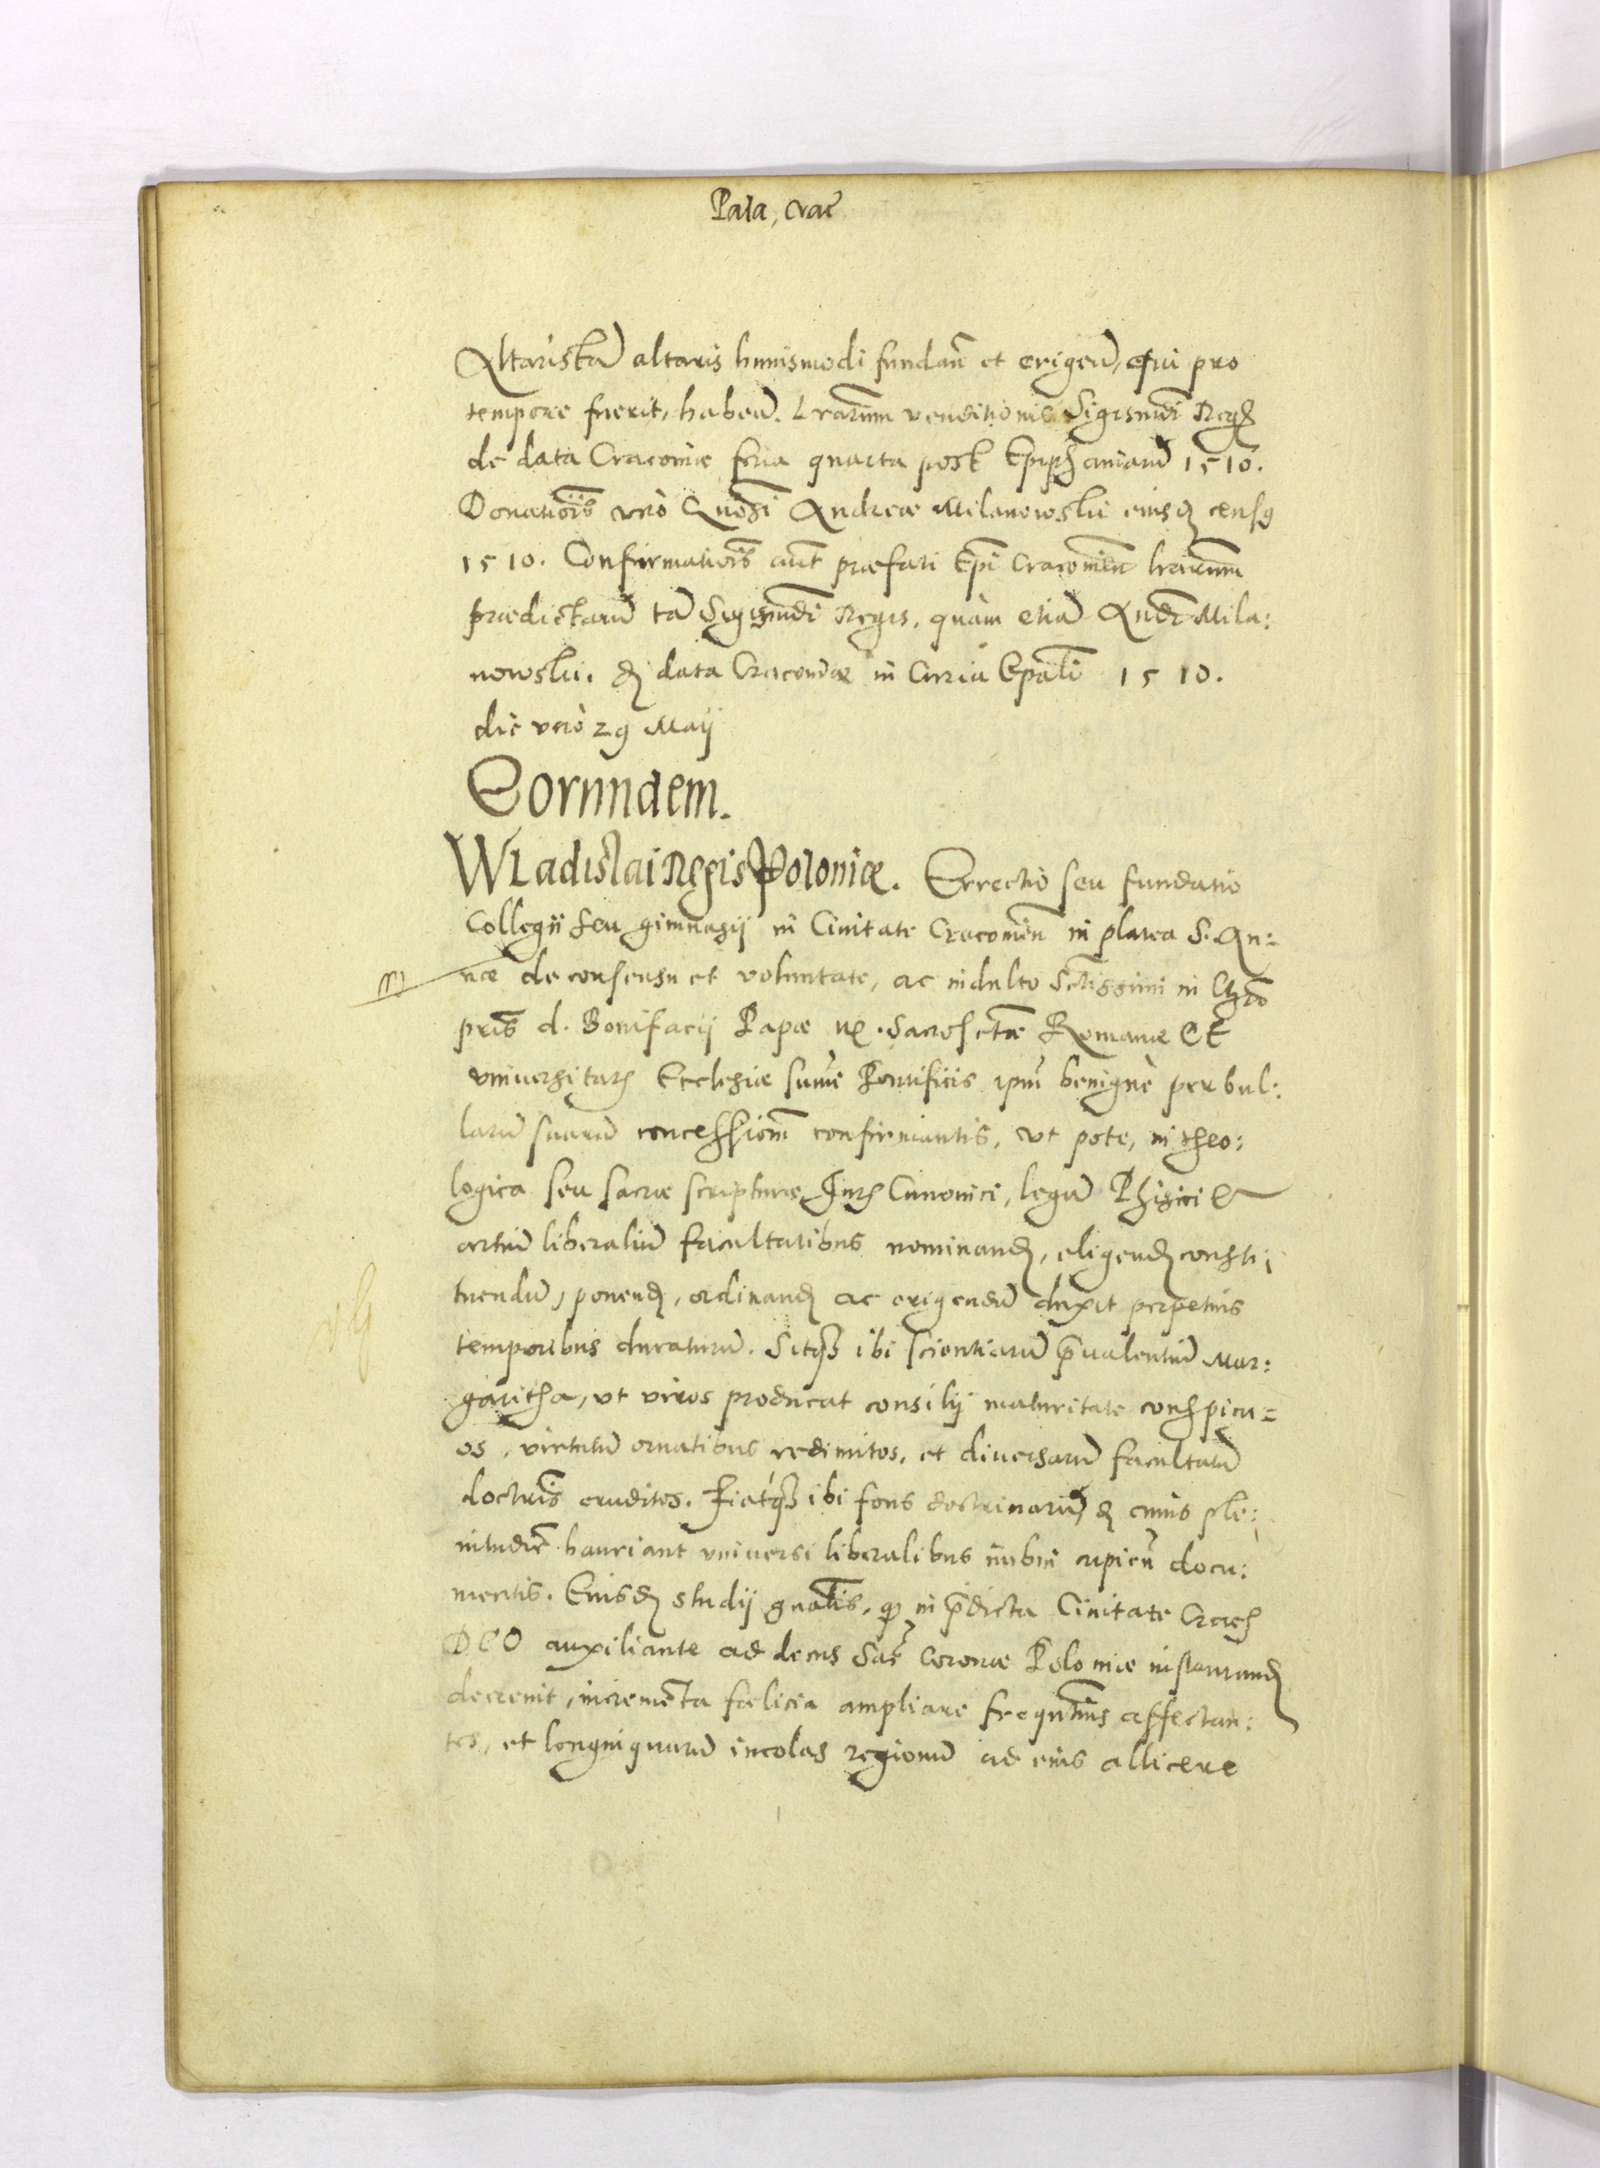 Pala, Crac̄
Altaristam̄ altaris huiusmodi fundan̄ et erigen̄, qui pro
tempore fuerit, haben̄. Lrarum venditionis Sigismūdi Reg
de data Cracoviæ feria quarta post Epiphaniarū 1510.
Donatiōis vero Andreæ Milanowski eiusdē censq
1510. Confirmatiōis aūt præfati Epī Cracovien̄ lrārum
prædictarū tā Sigismūdi Regis, quàm etiā Andr Mila:
nowski. de data Cracoviæ in Curia Epālī 1510.
die verò 29 Maij
Eorundem.
Wladislai Regis Poloniæ. Errectio seu fundatio
Collegii seu gimnasij in Ciuitate Cracovien̄ in platea S. An:
næ de consensu et voluntate, ac indulto Sctissimi in Chrō
pris̄ d. Bonifacij Papæ IX. Sacrosctæ Romanæ Et
vniuersitatis Ecclesiæ sum̄e Pontificis ipm̄ benignè per bul:
larū suarū concessionē confirmantis, vt pote, in theo:
logica seu sacræ scripturæ Juris Canonici, legū Phisici &
artiū liberaliū facultatibus nominand, eligend consti:
tuendū, ponend, ordinand ac erigendū duxit perpetuis
temporibus duraturū. Sitq3 ibi scientiarū p̄ualentiū Mar:
garitha, vt viros producat consilij maturitate conspicu=
os, virtutū ornatibus redimitos, et diuersarū facultatū
doctrīs eruditos. Fiatq3 ibi fons doctrinarū, de cuius ple:
nitudīe hauriant vniuersi liberalibus imbui cupien̄ docu:
mentis. Eiusdē studij gnālis, qd in p̄dicta Ciuitate Crac
DEO auxiliante ad decus Sac̄ Coronæ Poloniæ instaurand
decreuit, incremēta fœlicia ampliare frequntius affectan:
tes, et longinquarū incolas regionū ad eius allicere